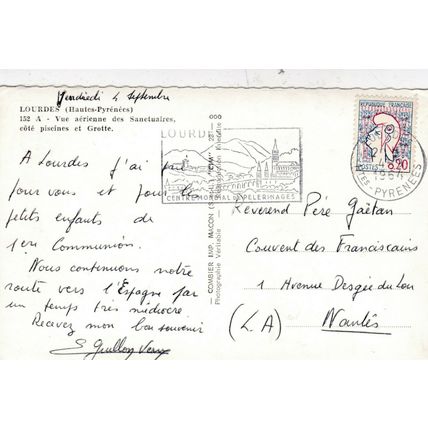 Vendredi 4 Septembre
LOURDES (Hautes-Pyrénées)
152 A - Vue aérienne des Sanctuaires,
côté piscines et Grotte.
A Lourdes j'ai prié
pour vous et pour les
petits enfants de
1ère Communion.
Nous continuons notre
route vers l'Espagne par
un temps très médiocre
Recevez mon bon souvenir
COMBIER IMP. MACON (S.-&-L.) "CIM"
Photographie Véritable - Reproduction Interdite
LOURDES
CENTRE MONDIAL DE PELERINAGES
REPUBLIQUE FRANCAISE
POSTES
0,20
1964
PYRENEES
Révérend Péré Gaëtan
Couvent des Franciscains
1 Avenue Desgée du Lou
(L A) Nantes